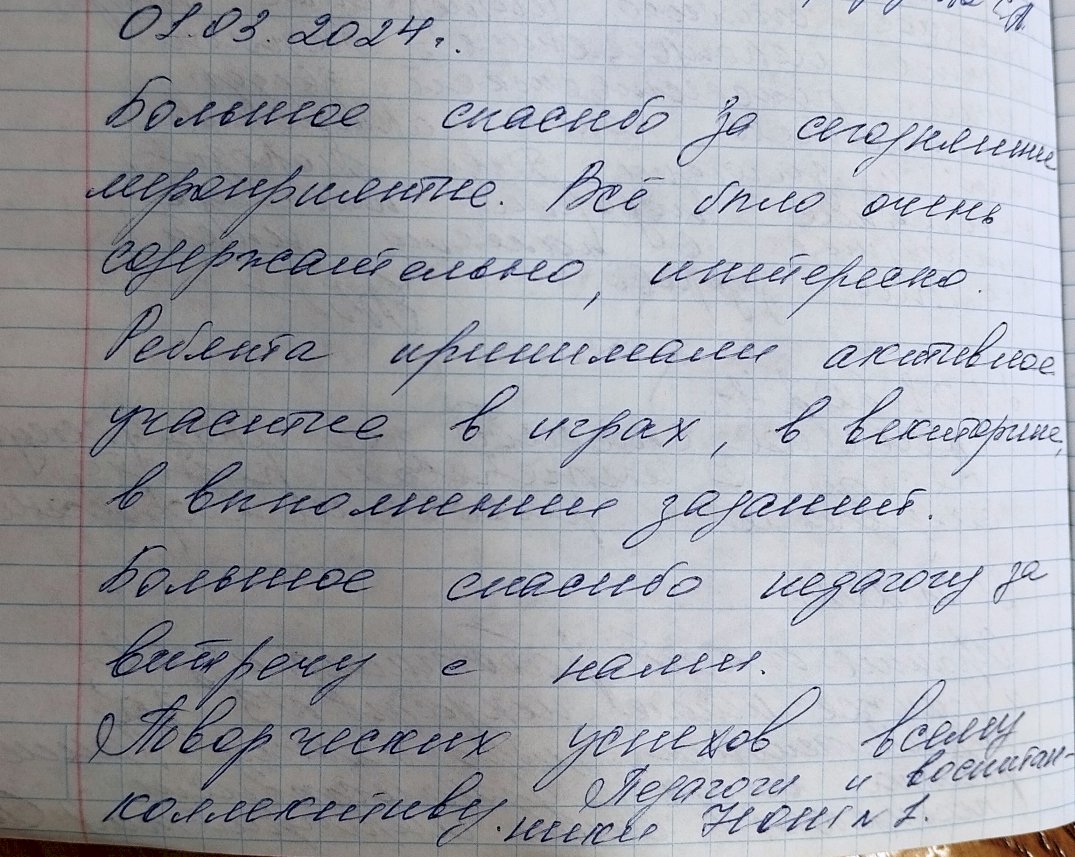 01.03.2024г.
Большое спасибо за сегодняшнее
мероприятие. Всё было очень
содержательно, интересно.
Ребята принимали активное
участие в играх, в викторине,
в выполнении заданий.
Большое спасибо педагогу за
встречу с нами.
Творческих успехов всему
коллективу. Педагоги и воспитан-
ники НОШ №1.